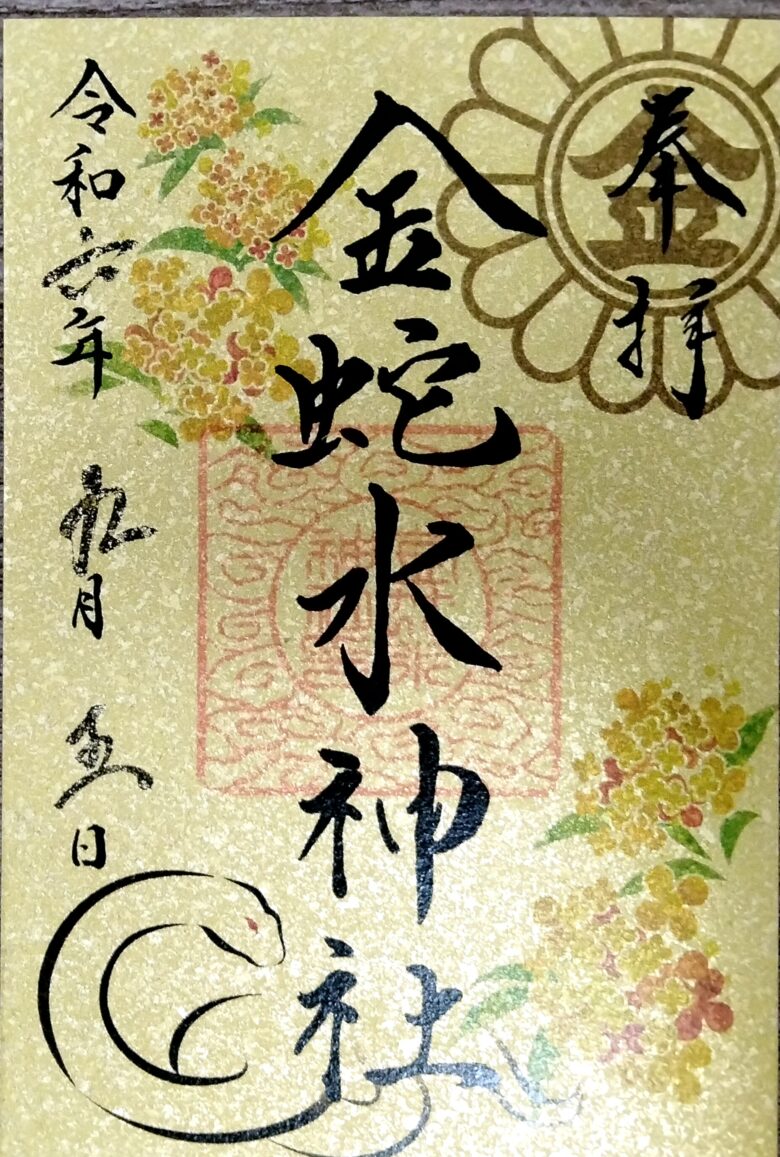 奉拝
金
金蛇水神社
令和六年 九月 五日